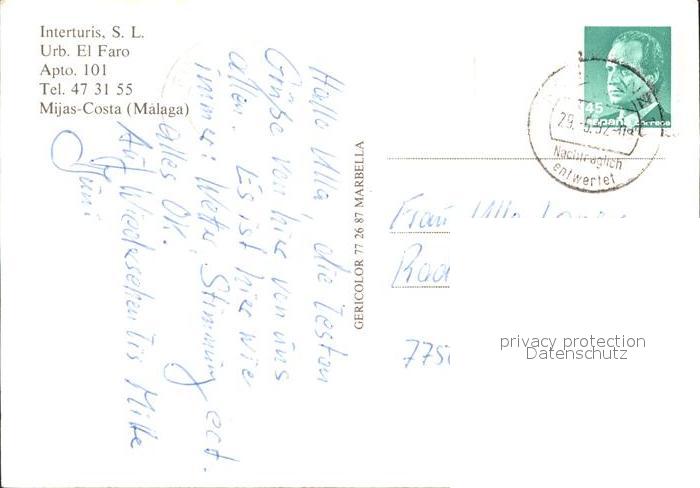 Interturis, S. L.
Urb. El Faro
Apto. 101
Tel. 47 31 55
Mijas-Costa (Malaga)
Hallo Ulla, die besten
Grüße von hier von uns
allen. Es ist hier wie
immer: Wetter, Stimmung ect.
alles OK!
Auf Wiedersehen bis Mitte
Juni
GERICOLOR 77 26 87 MARBELLA
45
españa correos
Nachträglich
entwertet
Frau Ulla
privacy protection
Datenschutz